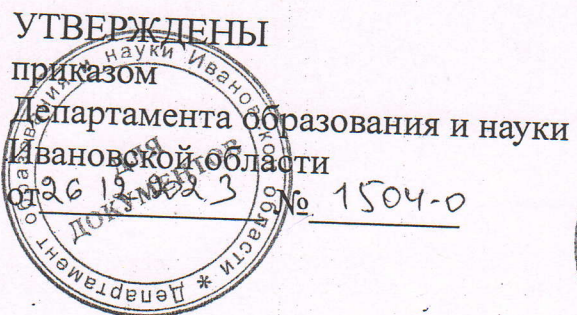 УТВЕРЖДЕНЫ
приказом
Департамента образования и науки
Ивановской области
от 26.12.2023 № 1504-о
Департамент образования и науки Ивановской области *
ДЛЯ
ДОКУМЕНТОВ